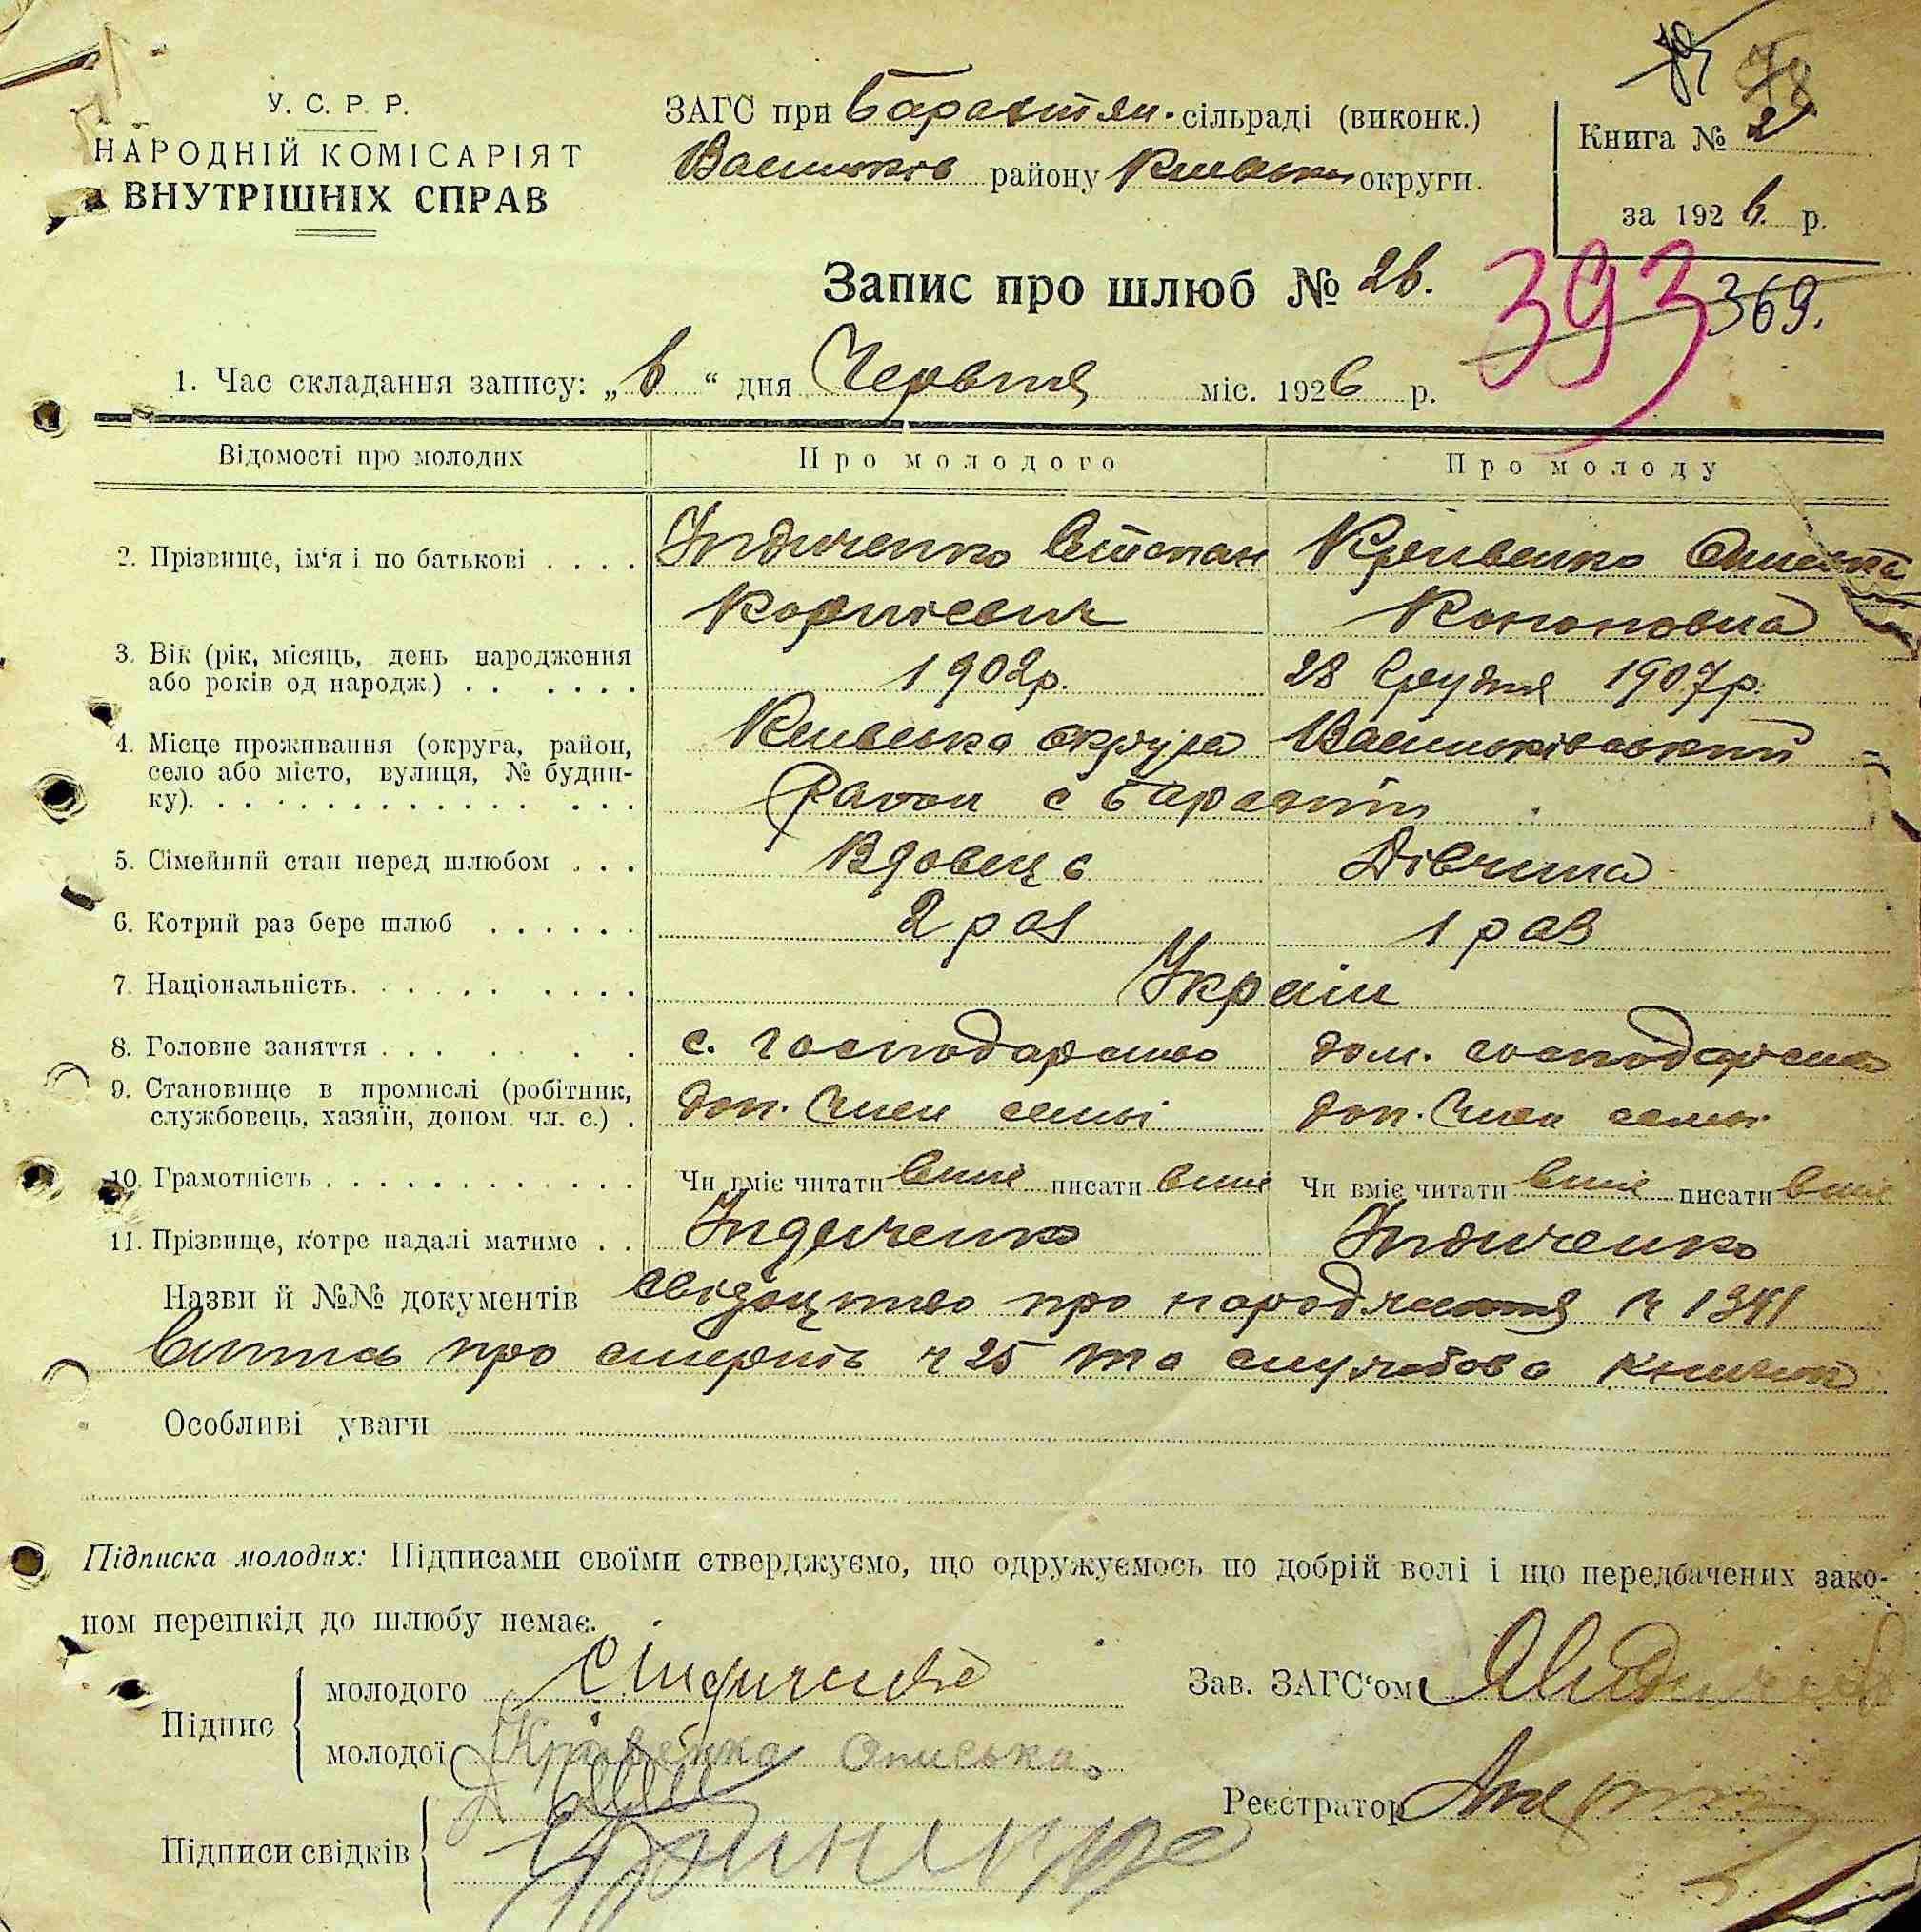 У. С. Р. Р.
НАРОДНІЙ КОМІСАРІЯТ
ВНУТРІШНІХ СПРАВ
ЗАГС при Барахтян. сільраді (виконк.)
Васильків району Київськ округи.
78
Книга № 2
за 1926 р.
Запис про шлюб № 26.
393
369.
1. Час складання запису: „6“ дня Червня міс. 1926 р.
Відомості про молодих
Про молодого
Про молоду
2. Прізвище, ім'я і по батькові . . . . Індиченко Степан Кривенко Ониська
Корнієвич Кононовна
3. Вік (рік, місяць, день народження
або років од народж.) . . . . . . 1902р. 28 Грудня 1907р.
4. Місце проживання (округа, район, Київська округа Васильківський
село або місто, вулиця, № будин-
ку). . . . . . . . . . . . . . Район с Барахти
5. Сімейний стан перед шлюбом . . . Вдовець Дівчина
6. Котрий раз бере шлюб . . . . . . 2 раз 1 раз
7. Національність. . . . . . . . . . Україн
8. Головне заняття . . . . . . . с. господарство дом. господарство
9. Становище в промислі (робітник,
службовець, хазяїн, допом. чл. с.) . доп. член семьі доп. член семьи
10. Грамотність . . . . . . . . . . . . Чи вміє читати вміє писати вміє Чи вміє читати вміє писати вміє
11. Прізвище, котре надалі матиме . . Індиченко Індиченко
Назви й №№ документів свідоцтво про народження ч 1341
Витяг про смерть ч 25 та службова книжка
Особливі уваги
Підписка молодих: Підписами своїми стверджуємо, що одружуємось по добрій волі і що передбачених зако-
ном перешкід до шлюбу немає.
Підпис
молодого
Зав. ЗАГС'ом
молодої Кривенко Ониська.
Реєстратор
Підписи свідків